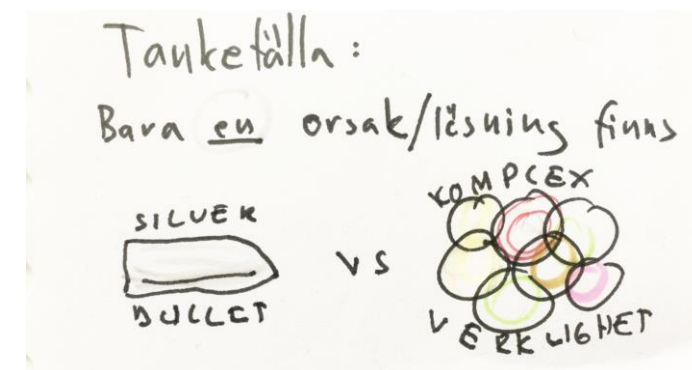 Tankefälla:
Bara en orsak/lösning finns
SILVER
BULLET
VS
KOMPLEX
VERKLIGHET